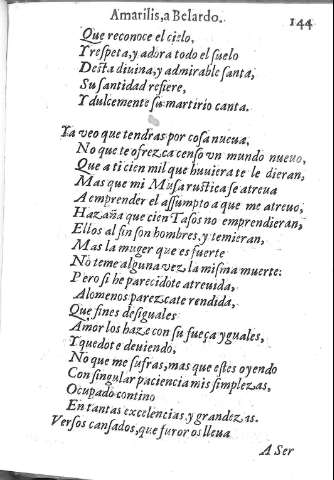 Amarilis, a Belardo. 144
Que reconoce el cielo,
Y respeta, y adora todo el suelo
Desta diuina, y admirable santa,
Su santidad refiere,
Y dulcemente su martirio canta.
Ya veo que tendras por cosa nueua,
No que te ofrezca censo vn mundo nueuo,
Que a ti cien mil que huuiera te le dieran,
Mas que mi Musa rustica se atreua
A emprender el assumpto a que me atreuo,
Hazaña que cien Tasos no emprendieran,
Ellos al fin son hombres, y temieran,
Mas la muger que es fuerte
No teme alguna vez la misma muerte:
Pero si he parecidote atreuida,
Alomenos parezcate rendida,
Que fines desiguales
Amor los haze con su fueça yguales,
Y quedote deuiendo,
No que me sufras, mas que estes oyendo
Con singular paciencia mis simplezas,
Ocupado contino
En tantas excelencias y grandezas.
Versos cansados, que furor os lleua
A Ser